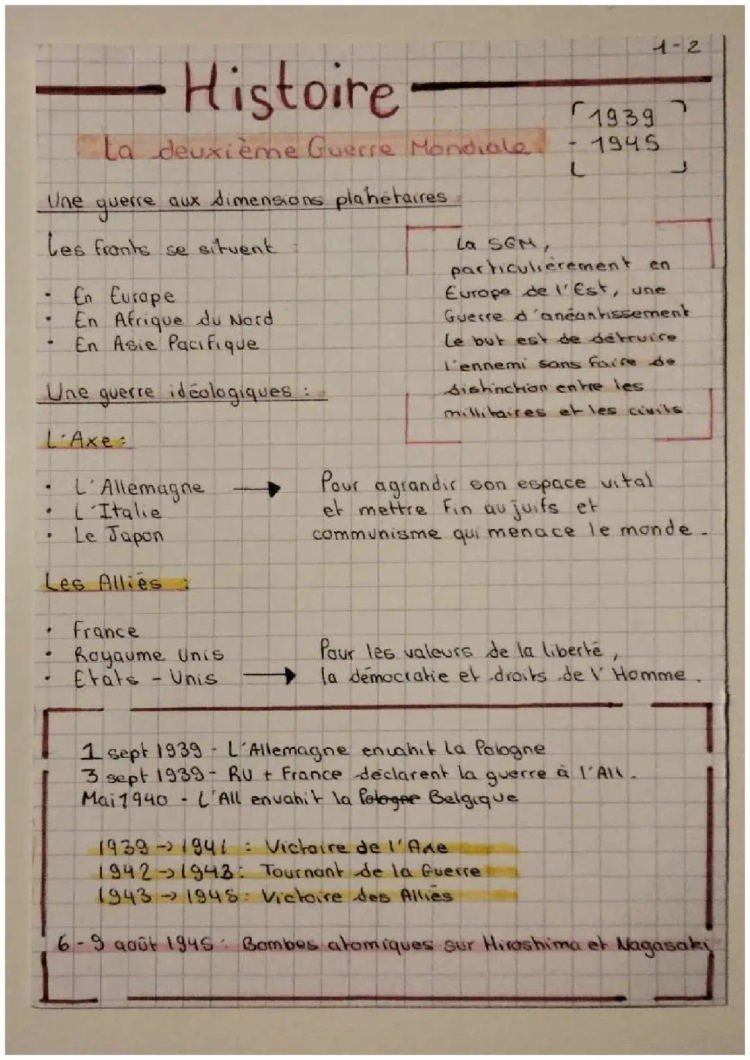 1-2
Histoire
1939
- 1945
La deuxième Guerre Mondiale
Une guerre aux dimensions planétaires
Les fronts se situent :
• En Europe
• En Afrique du Nord
• En Asie Pacifique
La SGM,
particulièrement en
Europe de l'Est, une
Guerre d'anéantissement
Le but est de détruire
l'ennemi sans faire de
distinction entre les
millitaires et les civils
Une guerre idéologiques :
L'Axe :
• L'Allemagne →
• L'Italie
• Le Japon
Pour agrandir son espace vital
et mettre fin au juifs et
communisme qui menace le monde.
Les Alliés :
• France
• Royaume Unis
• Etats - Unis →
Pour les valeurs de la liberté,
la démocratie et droits de l'Homme.
1 sept 1939 - L'Allemagne envahit la Pologne
3 sept 1939 - RU + France déclarent la guerre à l'All.
Mai 1940 - L'All envahit la Pologne Belgique
1939 → 1941 : Victoire de l'Axe
1942 → 1943 : Tournant de la Guerre
1943 → 1945 : Victoire des Alliés
6-9 août 1945 : Bombes atomiques sur Hiroshima et Nagasaki